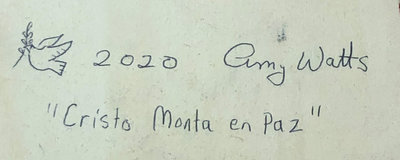 2020 Amy Watts
"Cristo Monta en Paz"